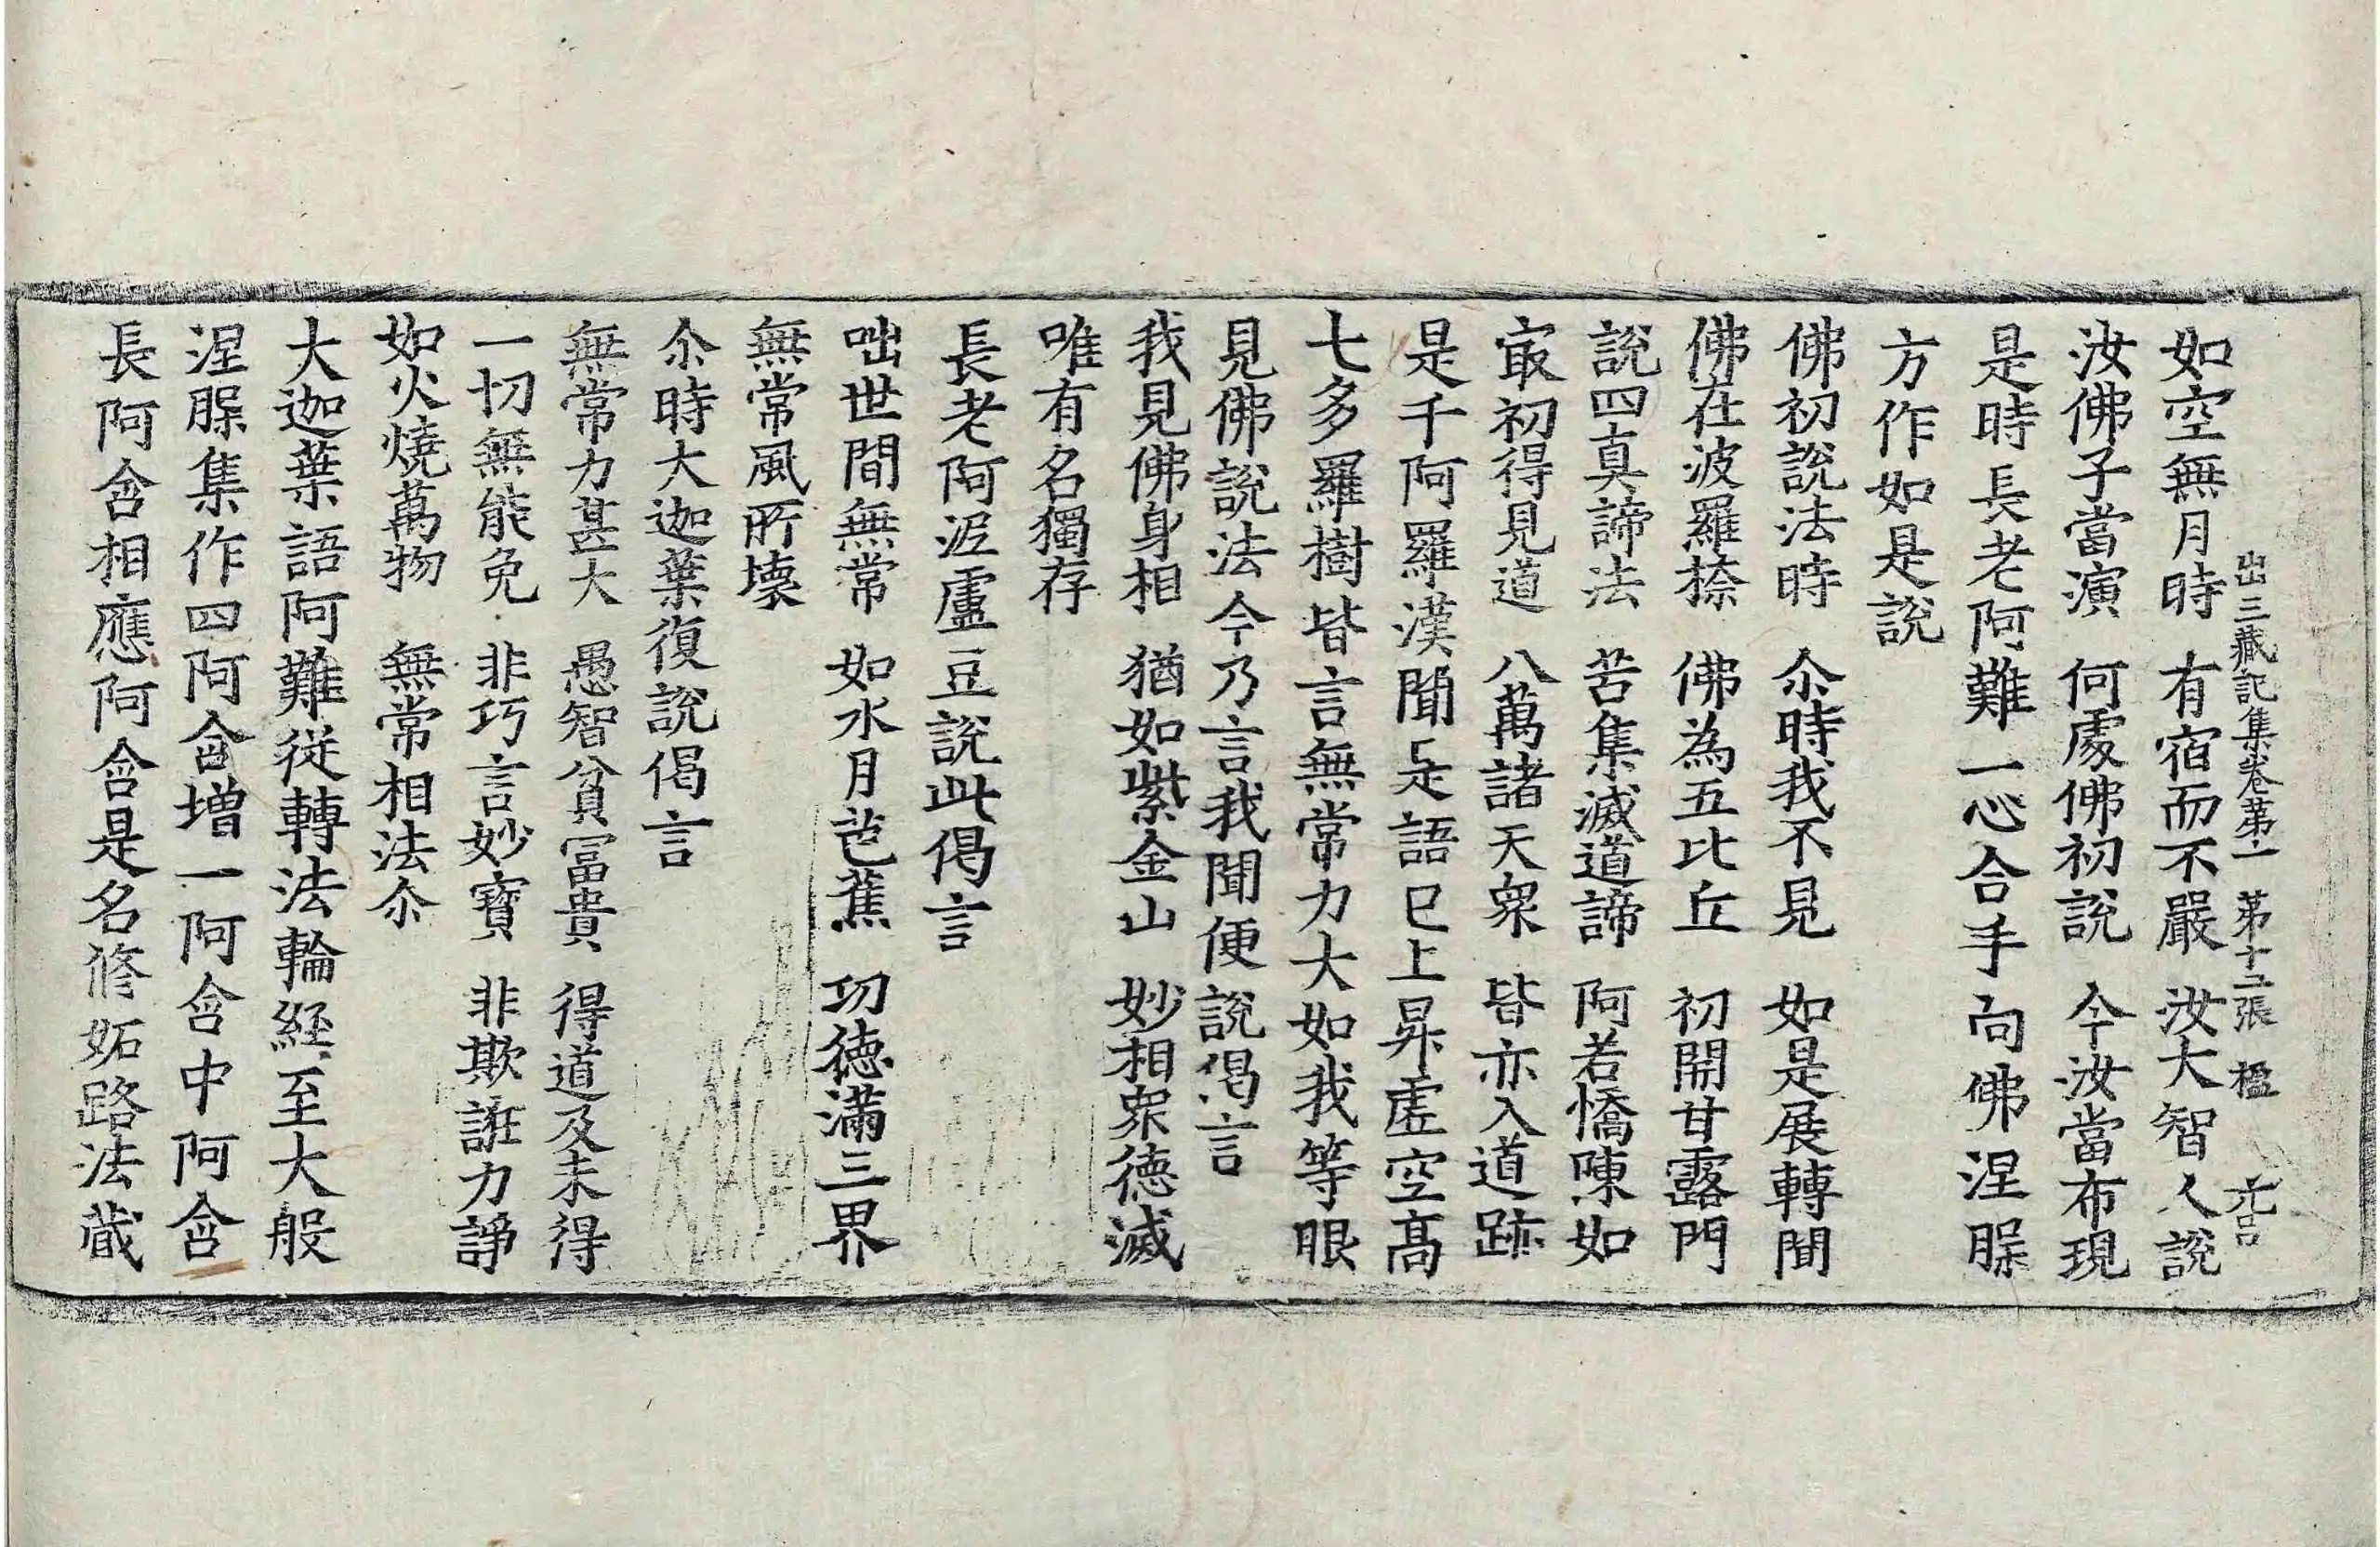 出三藏記集卷苐一 苐十五張 楹 元吕
如空無月時 有宿而不嚴 汝大智人說
汝佛子當演 何處佛初說 今汝當布現
是時長老阿難一心合手向佛涅腂
方作如是說
佛初說法時 尒時我不見 如是展轉聞
佛在波羅捺 佛為五比丘 初開甘露門
說四真諦法 苦集滅道諦 阿若憍陳如
㝡初得見道 八萬諸天衆 皆亦入道跡
是千阿羅漢聞是語已上昇虛空高
七多羅樹皆言無常力大如我等眼
見佛說法今乃言我聞便說偈言
我見佛身相 猶如紫金山 妙相衆德滅
唯有名獨存
長老阿泥盧豆說此偈言
咄世間無常 如水月芭蕉 功德滿三界
無常風所壞
尒時大迦葉復說偈言
無常力甚大 愚智貧冨貴 得道及未得
一切無能免 非巧言妙寶 非欺誑力諍
如火燒萬物 無常相法尒
大迦葉語阿難從轉法輪經至大般
涅腂集作四阿含增一阿含中阿含
長阿含相應阿含是名修妬路法藏